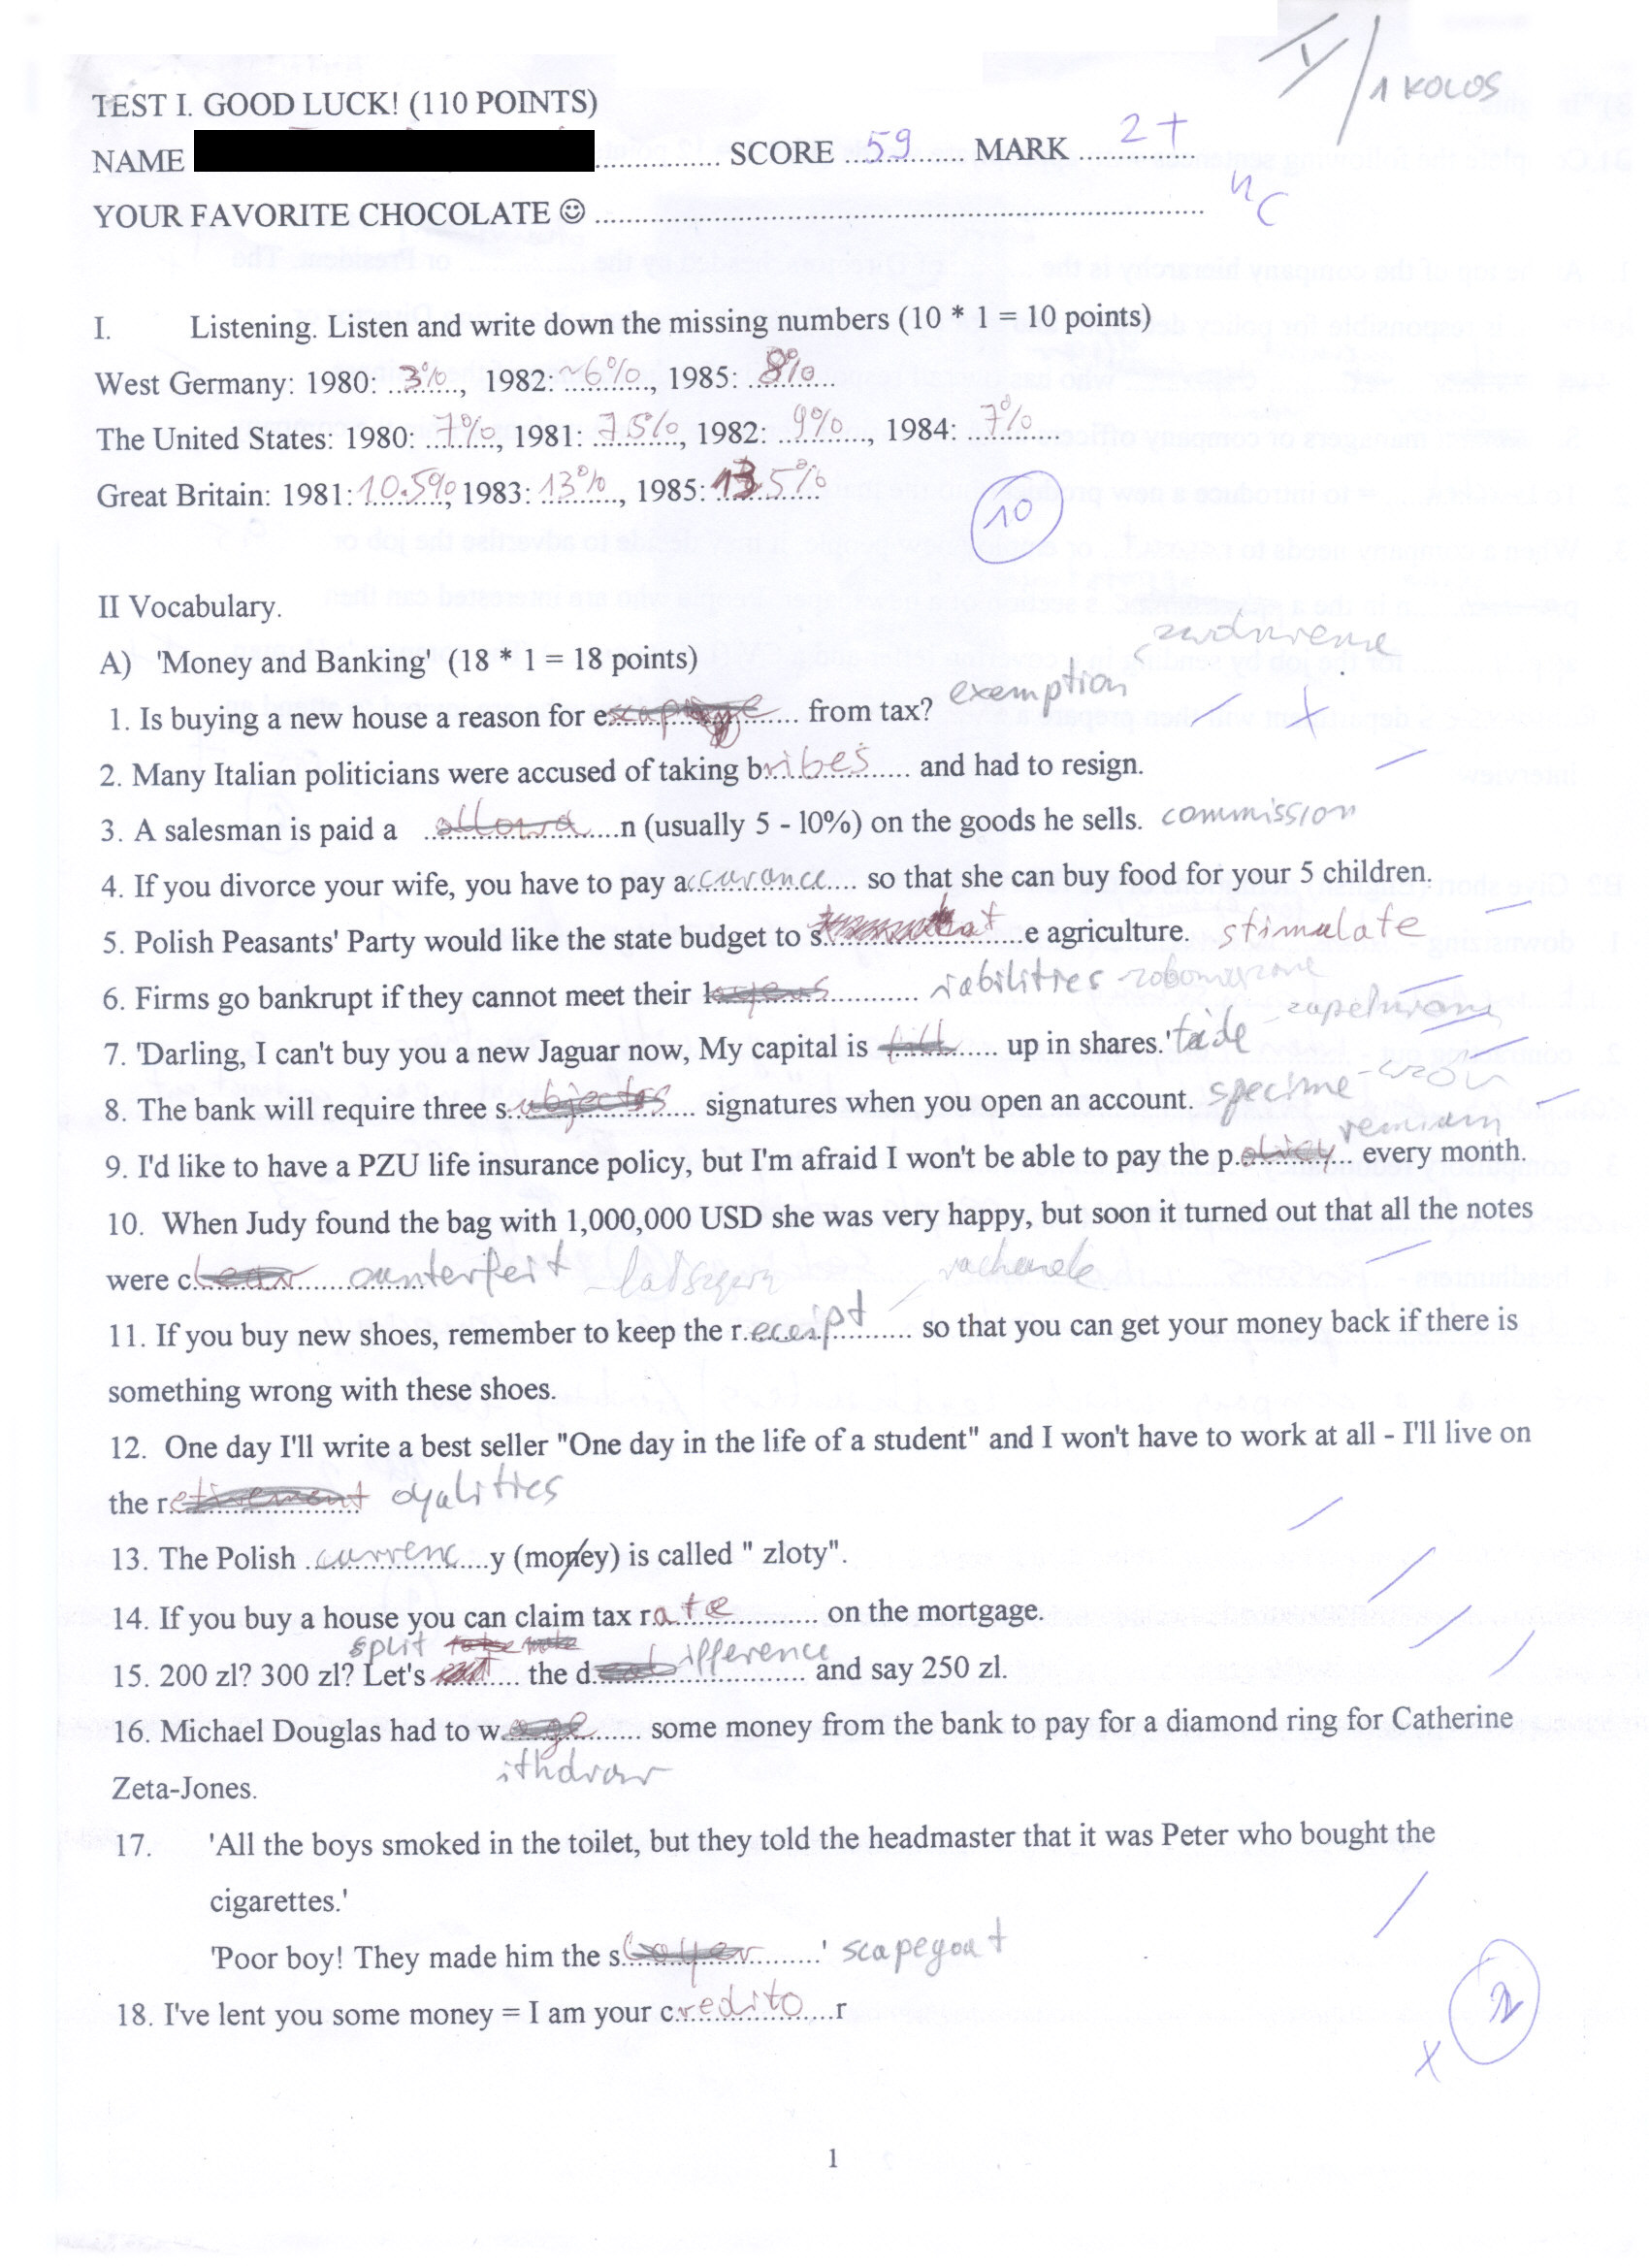 1 KOLOS
TEST I. GOOD LUCK! (110 POINTS)
NAME .................. SCORE ...59............ MARK ...2+............
nC
YOUR FAVORITE CHOCOLATE ☺ ..............................................................................
I. Listening. Listen and write down the missing numbers (10 * 1 = 10 points)
West Germany: 1980: 3%, 1982: ~6%, 1985: 8%
The United States: 1980: 7%, 1981: 7.5%, 1982: 9%, 1984: 7%
Great Britain: 1981: 10.5%, 1983: 13%, 1985: 13 5%
10
II Vocabulary.
A) 'Money and Banking' (18 * 1 = 18 points)
1. Is buying a new house a reason for e.................... from tax? exemption
2. Many Italian politicians were accused of taking bribes and had to resign.
3. A salesman is paid a ....................n (usually 5 - 10%) on the goods he sells. commission
4. If you divorce your wife, you have to pay accurance so that she can buy food for your 5 children.
5. Polish Peasants' Party would like the state budget to s....................e agriculture. stimulate
6. Firms go bankrupt if they cannot meet their l.................... iabilities
7. 'Darling, I can't buy you a new Jaguar now, My capital is ............ up in shares.' taide
8. The bank will require three subjects signatures when you open an account. specime
9. I'd like to have a PZU life insurance policy, but I'm afraid I won't be able to pay the policy every month. remium
10. When Judy found the bag with 1,000,000 USD she was very happy, but soon it turned out that all the notes
were clear ounterfeit
11. If you buy new shoes, remember to keep the receipt so that you can get your money back if there is
something wrong with these shoes.
12. One day I'll write a best seller "One day in the life of a student" and I won't have to work at all - I'll live on
the retirement oyalities
13. The Polish currency (money) is called " zloty".
14. If you buy a house you can claim tax rate on the mortgage.
split take make
15. 200 zl? 300 zl? Let's ............ the d............ ifference and say 250 zl.
16. Michael Douglas had to wage some money from the bank to pay for a diamond ring for Catherine
ithdraw
Zeta-Jones.
17. 'All the boys smoked in the toilet, but they told the headmaster that it was Peter who bought the
cigarettes.'
'Poor boy! They made him the s....................' scapegoat
18. I've lent you some money = I am your creditor
x
1